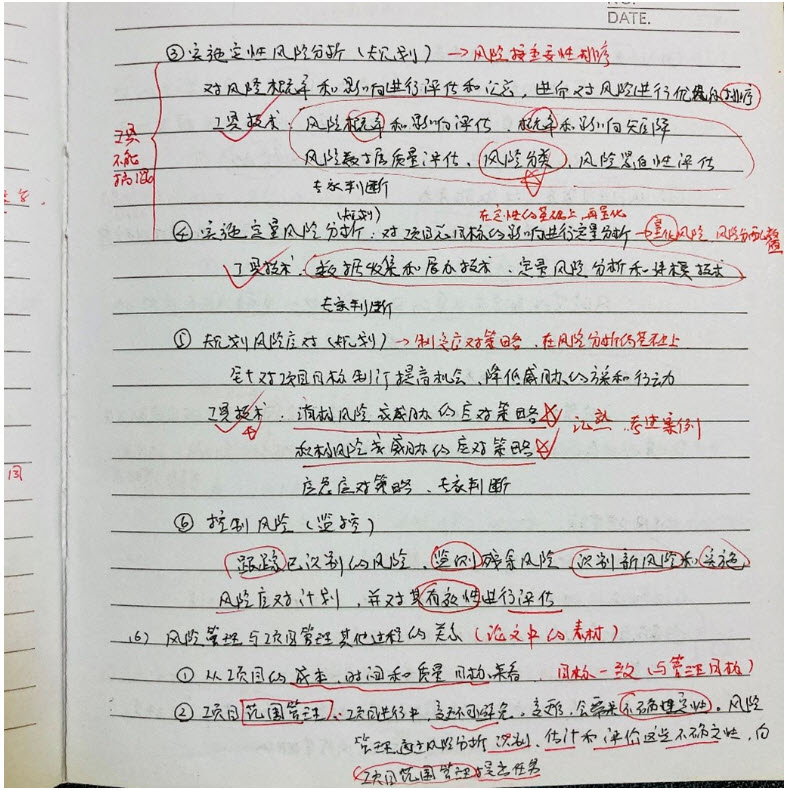 DATE.
③ 实施定性风险分析（规划）→ 风险按重要性排序
对风险概率和影响进行评估和汇总，进而对风险进行优先级排序
工具技术：风险概率和影响评估、概率和影响矩阵
工具不能搞混
风险数据质量评估、风险分类、风险紧迫性评估
专家判断
（规划） 在定性的基础上，再量化
④ 实施定量风险分析：对项目总目标的影响进行定量分析 → 量化风险，风险分配数值
工具技术：数据收集和展示技术、定量风险分析和建模技术
专家判断
⑤ 规划风险应对（规划）→ 制定应对策略，在风险分析的基础上
针对项目目标制订提高机会、降低威胁的方案和行动
工具技术：消极风险或威胁的应对策略 记熟，考过案例
积极风险或威胁的应对策略
应急应对策略、专家判断
⑥ 控制风险（监控）
跟踪已识别的风险、监测残余风险、识别新风险和实施
风险应对计划，并对其有效性进行评估
(6) 风险管理与项目管理其他过程的关系（论文中的素材）
① 从项目的成本、时间和质量目标来看，目标一致（与管理目标）
② 项目范围管理：项目进行中，变更不可避免，变更，会带来不确定性。风险
管理通过风险分析识别、估计和评价这些不确定性，向
项目范围管理提出任务